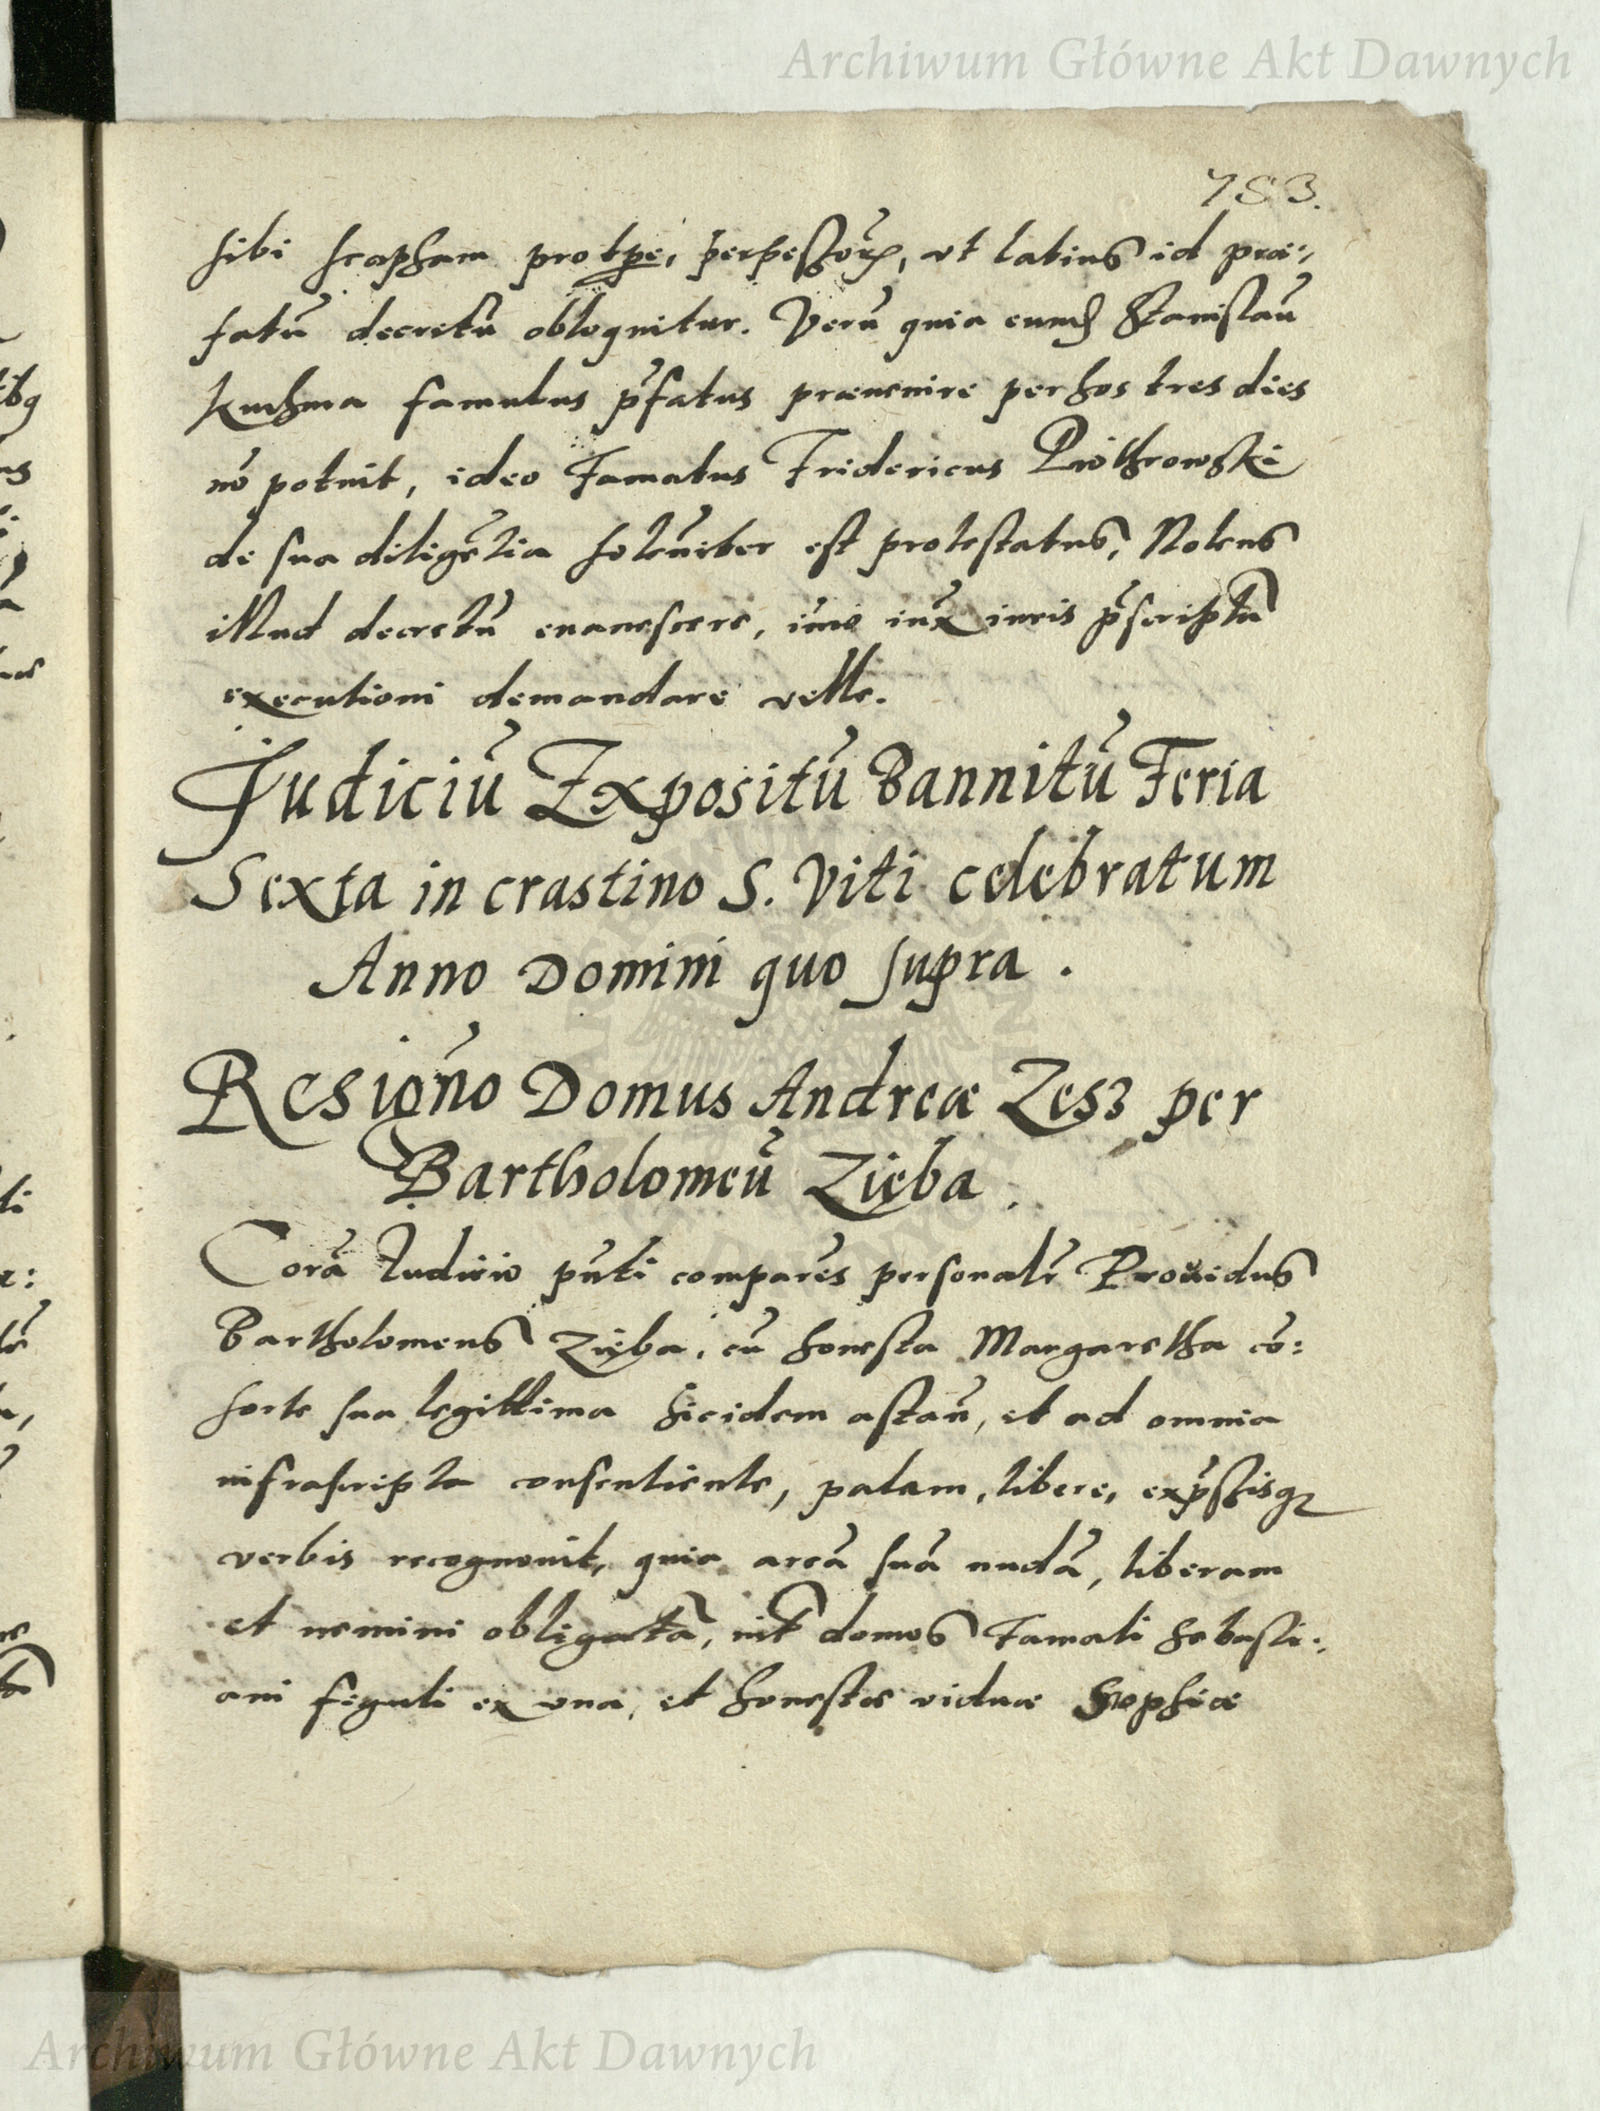 Archiwum Główne Akt Dawnych
783.
sibi scapham pro tpe, perpessorū, vt latius id præ:,
fatū decretū obloquitur. Verū quia eund Stanislaū
Kuchma famulus p̃fatus præuenire per hos tres dies
nō potuit, ideo Famatus Fridericus Piothrowski
de sua diligētia solēniter est protestatus, Nolens
illud decretū euanescere, imo iux iuris p̃scriptū
executioni demandare velle.
Judiciū Expositū Bannitū Feria
Sexta in crastino S. Viti celebratum
Anno Domini quo supra.
Resigño Domus Andreæ Zesz per
Bartholomeū Zięba.
Corā Iudicio pñti comparēs personalr Prouidus
Bartholomeus Zięba, cū honesta Margaretha cō:
sorte sua legittima hicidem astañ, et ad omnia
infrascripta consentiente, palam, libere, exp̃ssisq
verbis recognouit, quia areā suā nudā, liberam
et nemini obligatā, int domos Famati Sebasti:,
ani figuli ex vna, et honestæ viduæ Sophiæ
Archiwum Główne Akt Dawnych